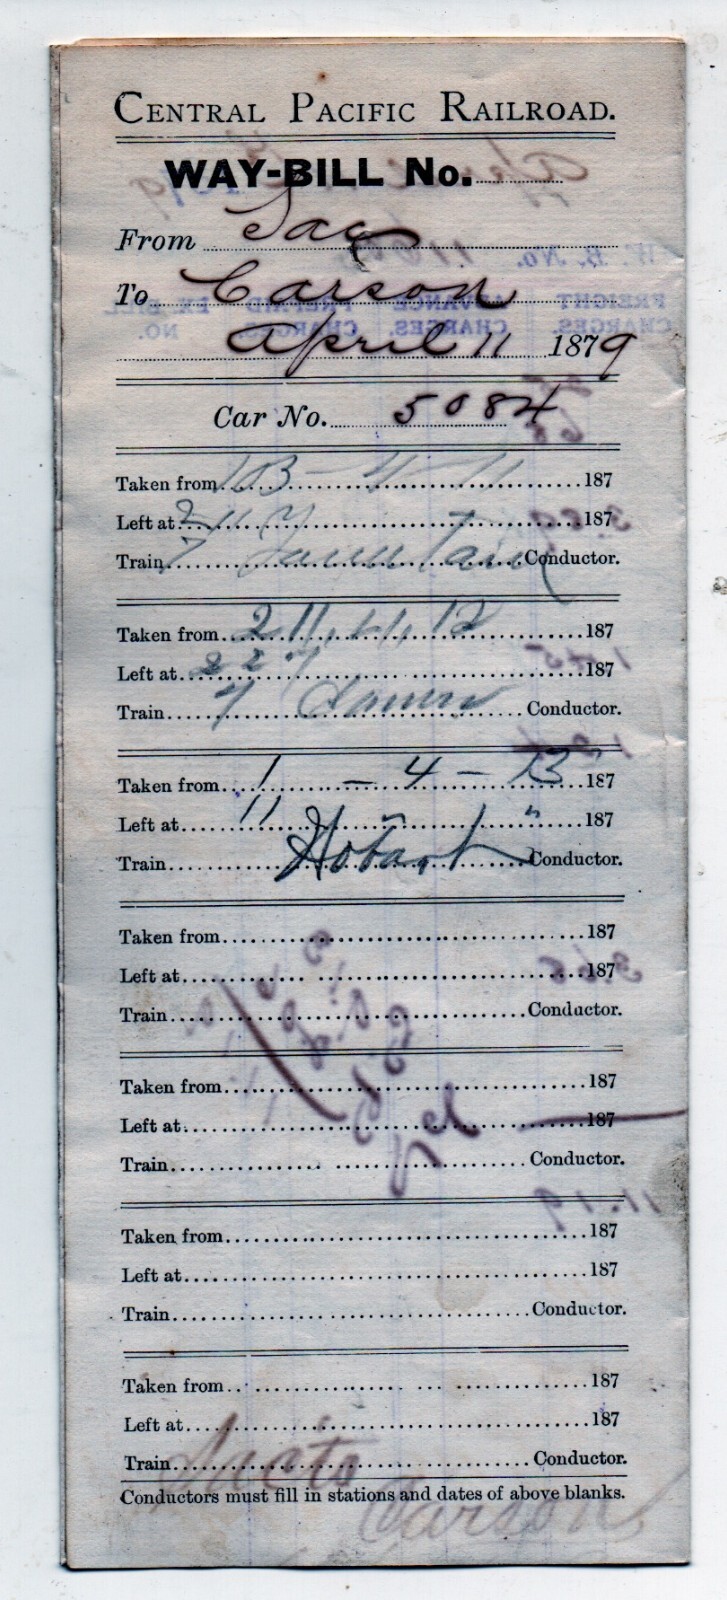 CENTRAL PACIFIC RAILROAD.
WAY-BILL No.
From Sac
To Carson
April 11 1879
Car No. 5084
Taken from 187
Left at 187
Train 7 Conductor.
Taken from 2 11, 4, 12 187
Left at 187
Train 7 Conductor.
Taken from 1 - 4 - 13 187
Left at 11 " " 187
Train Hobart Conductor.
Taken from 187
Left at 187
Train Conductor.
Taken from 187
Left at 187
Train Conductor.
Taken from 187
Left at 187
Train Conductor.
Taken from 187
Left at 187
Train Conductor.
Conductors must fill in stations and dates of above blanks.
Carson